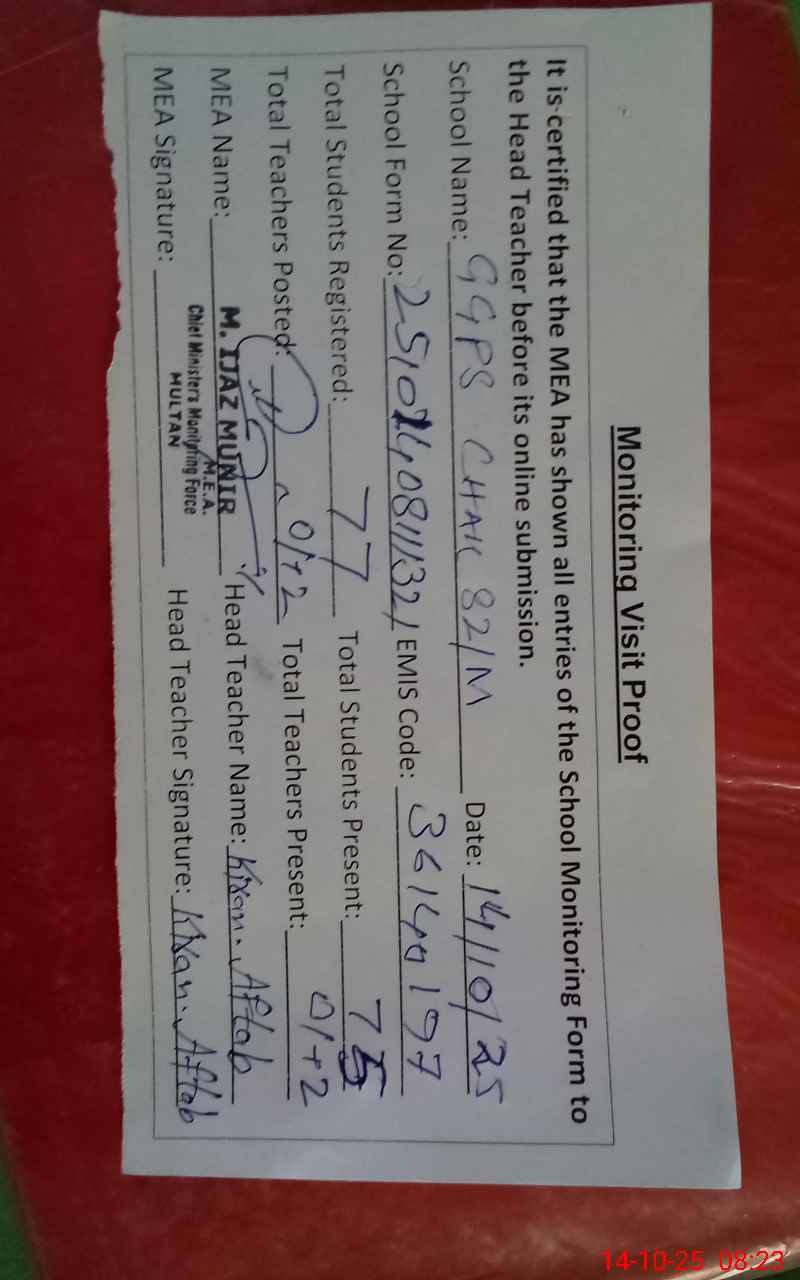 Monitoring Visit Proof
It is certified that the MEA has shown all entries of the School Monitoring Form to
the Head Teacher before its online submission.
School Name: GGPS CHAK 82/M Date: 14/10/25
School Form No: EMIS Code: 36140197
Total Students Registered: 77 Total Students Present: 75
Total Teachers Posted: 01+2 Total Teachers Present: 01+2
MEA Name: M. IJAZ MUNIR Head Teacher Name: Kiran. Aftab
M.E.A.
Chief Minister's Monitoring Force
MULTAN
MEA Signature: Head Teacher Signature: Kiran. Aftab
14-10-25 08:23